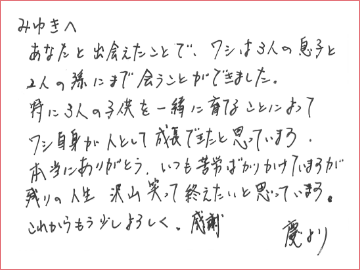 みゆきへ
あなたと出会えたことで、ワシは3人の息子と
2人の孫にまで会うことができました。
特に3人の子供を一緒に育てることによって
ワシ自身が人として成長できたと思っています。
本当にありがとう。いつも苦労ばかりかけていますが
残りの人生 沢山笑って終えたいと思っています。
これからもう少しよろしく。感謝
慶より